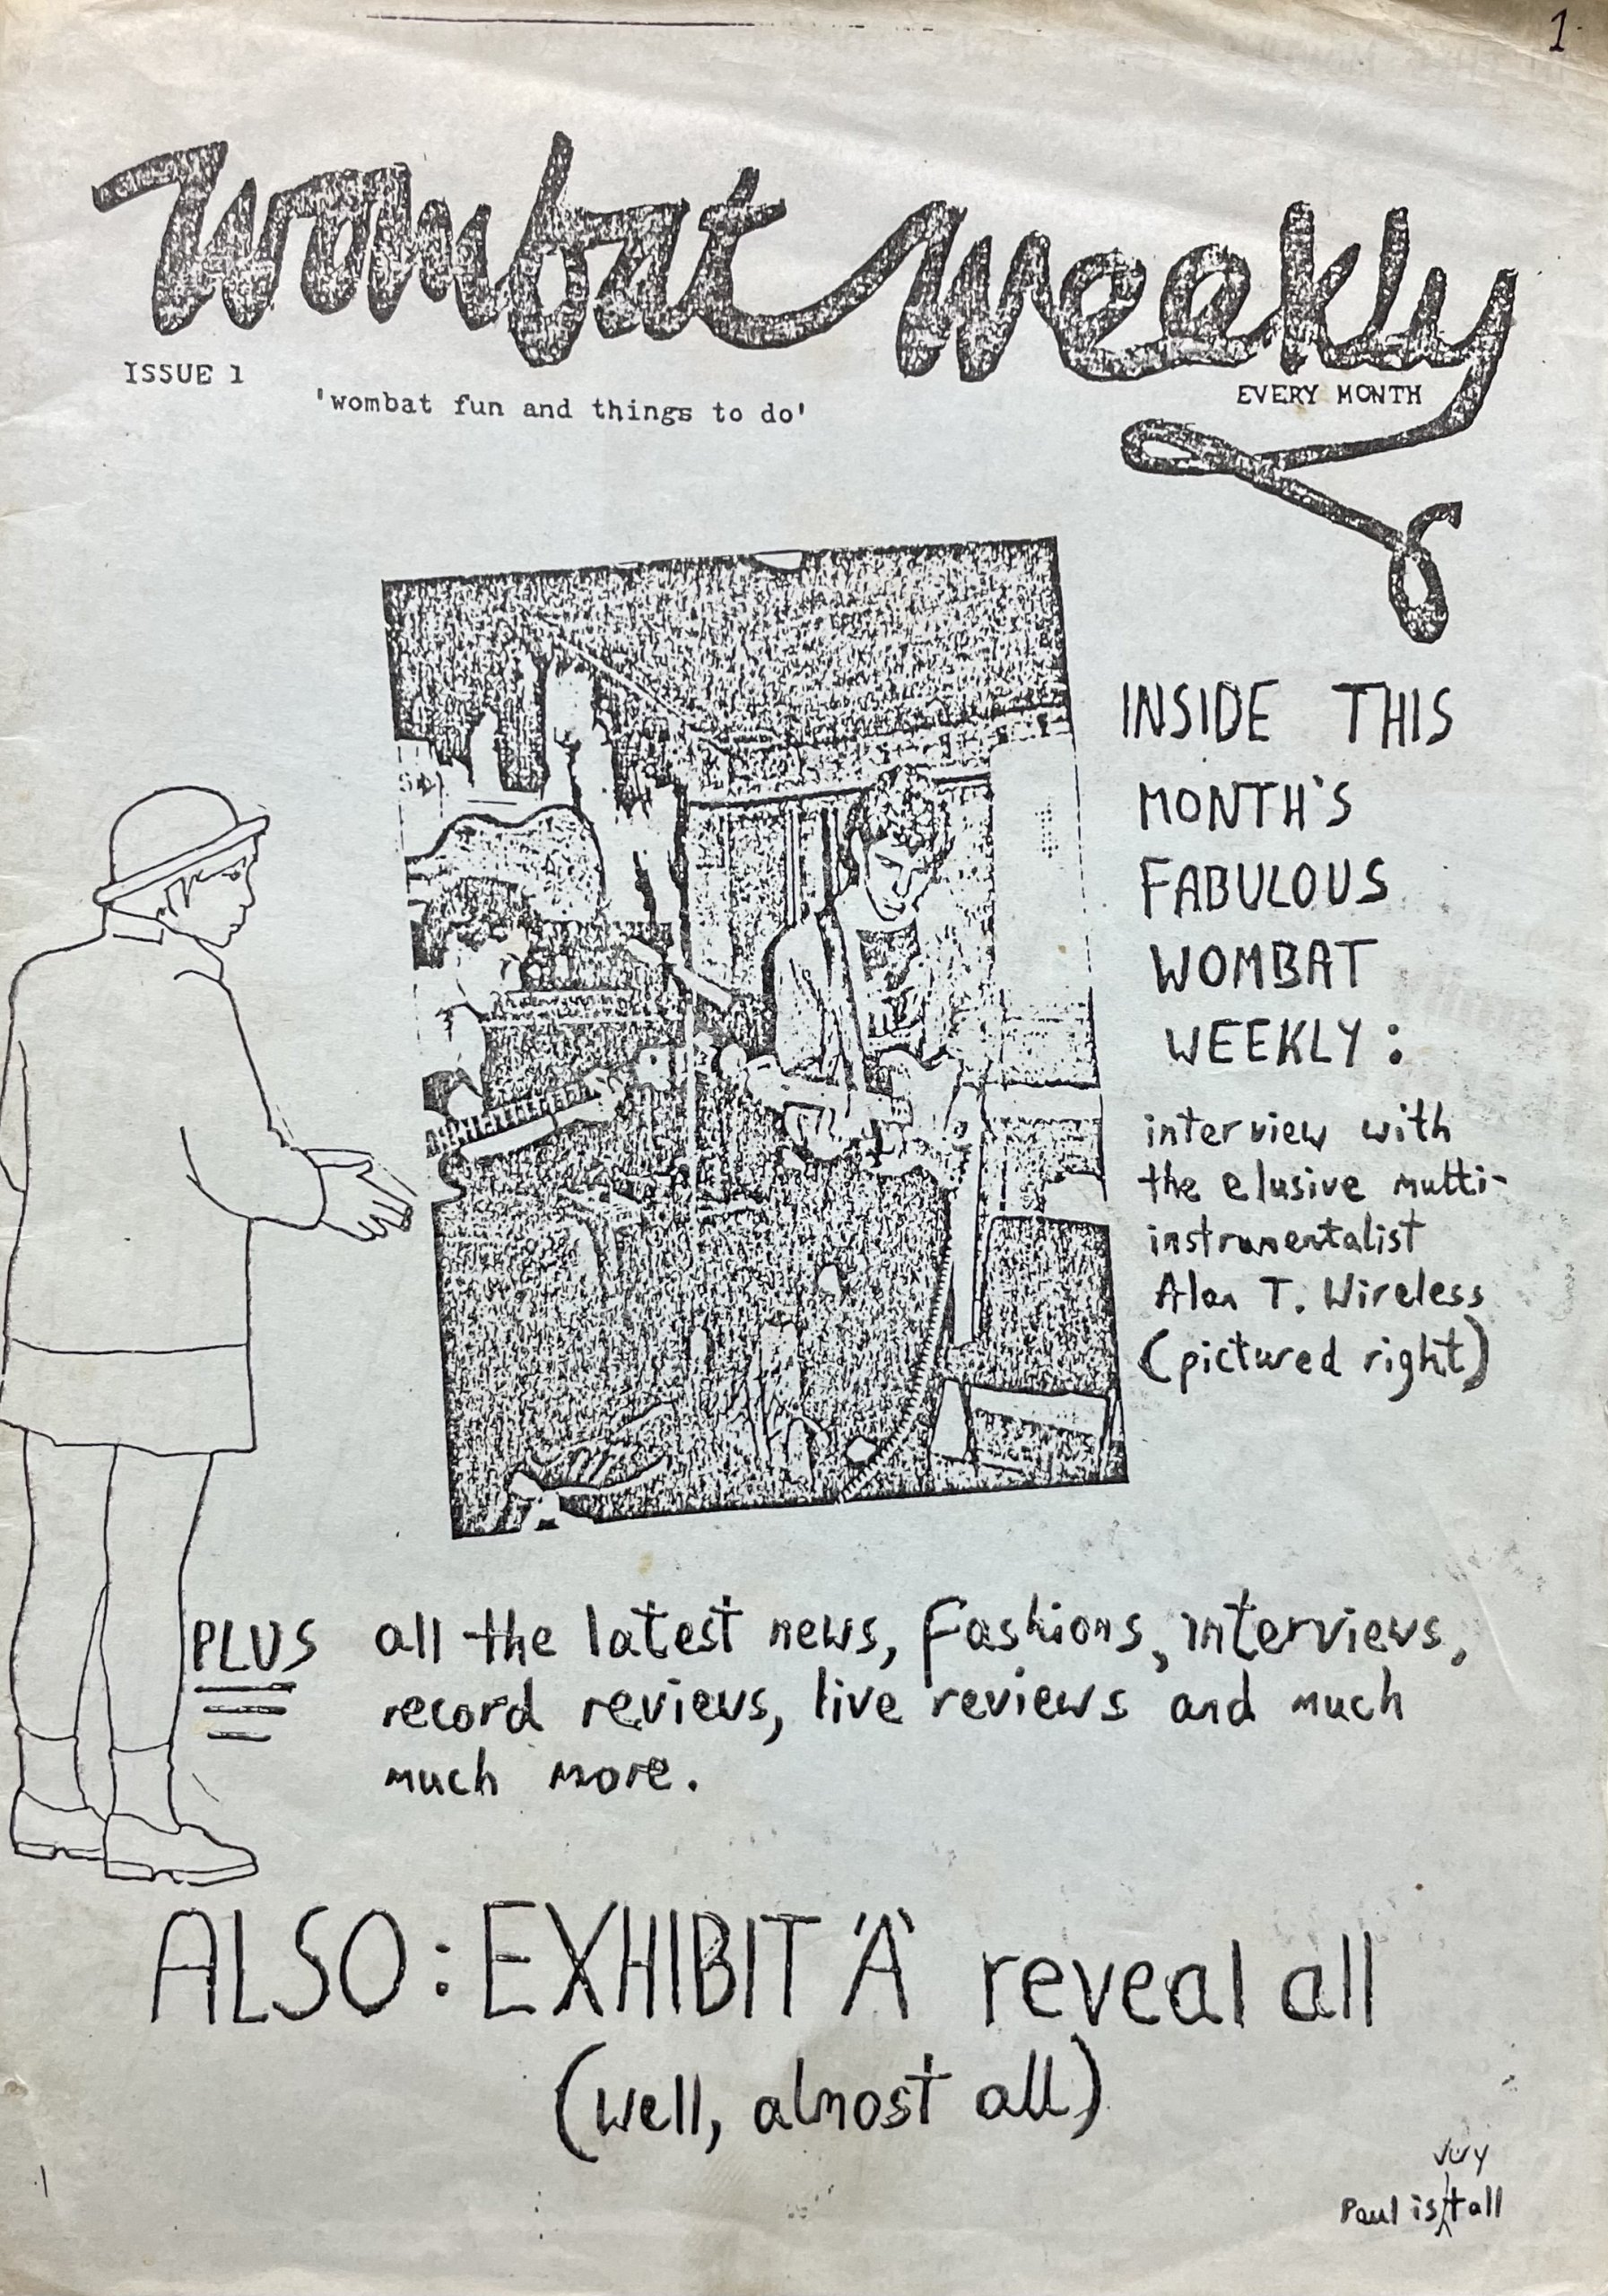 1
Wombat Weekly
ISSUE 1
'wombat fun and things to do'
EVERY MONTH
INSIDE THIS
MONTH'S
FABULOUS
WOMBAT
WEEKLY:
interview with
the elusive multi-
instrumentalist
Alan T. Wireless
(pictured right)
PLUS all the latest news, fashions, interviews,
record reviews, live reviews and much
much more.
ALSO: EXHIBIT 'A' reveal all
(well, almost all)
very
Paul is tall